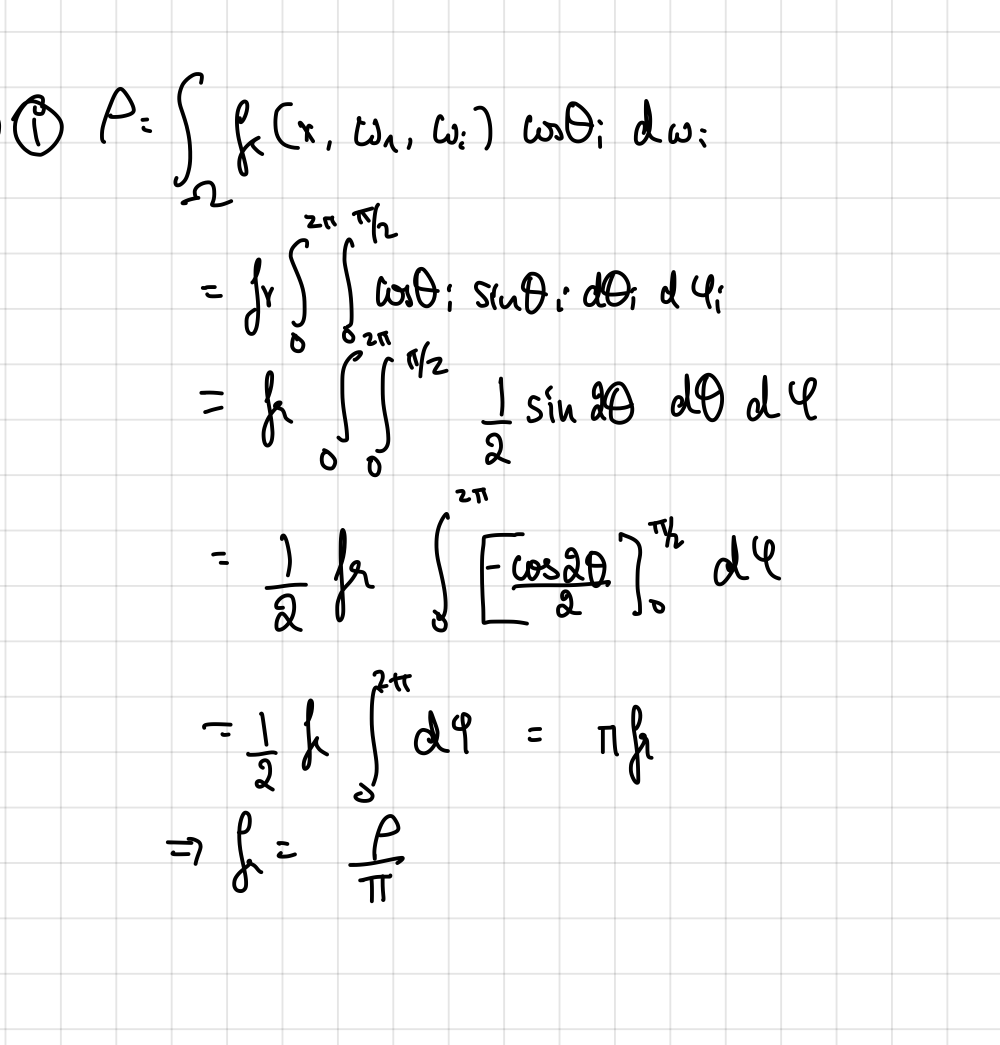 ① ρ = ∫_Ω f_r(x, ω_r, ω_i) cosθ_i dω_i
= f_r ∫_0^{2π} ∫_0^{π/2} cosθ_i sinθ_i dθ_i dφ_i
= f_r ∫_0^{2π} ∫_0^{π/2} 1/2 sin 2θ dθ dφ
= 1/2 f_r ∫_0^{2π} [-cos2θ/2]_0^{π/2} dφ
= 1/2 f_r ∫_0^{2π} dφ = π f_r
⇒ f_r = ρ/π